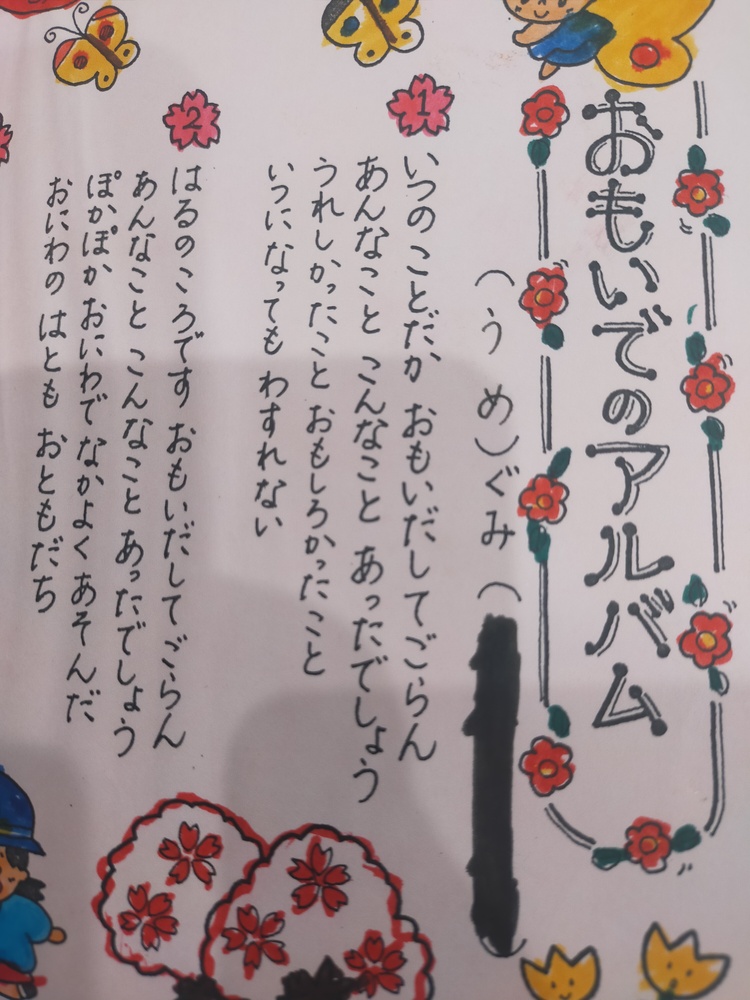 おもいでのアルバム
（うめ）ぐみ（
1
いつのことだか おもいだしてごらん
あんなこと こんなこと あったでしょう
うれしかったこと おもしろかったこと
いつになっても わすれない
2
はるのころです おもいだしてごらん
あんなこと こんなこと あったでしょう
ぽかぽか おにわで なかよく あそんだ
おにわの はとも おともだち